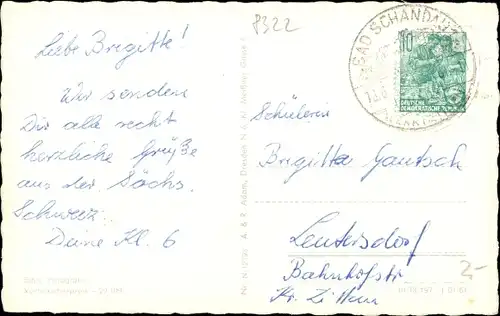 8322
Liebe Brigitte!
Wir senden
Dir alle recht
herzliche Grüße
aus der Sächs.
Schweiz.
Deine Kl. 6
A. & R. Adam, Dresden N 6, Meißner Gasse
BAD SCHANDAU
10
DEUTSCHE
DEMOKRATISCHE
Schülerin
Brigitte Gautsch
Leutersdorf
Bahnhofstr
Kr. Zittau
2,-